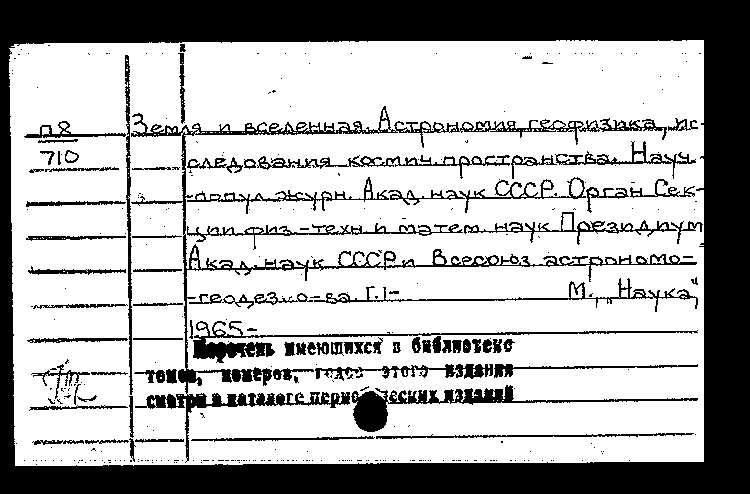 п8 Земля и вселенная. Астрономия, геофизика, ис-
710 следования космич. пространства. Науч.-
-попул. журн. Акад. наук СССР. Орган Сек-
ции физ.-техн. и матем. наук Президиум
Акад. наук СССР и Всесоюз. астрономо-
-геодез. о-ва. Г.1- М., „Наука",
1965-
Перечень имеющихся в библиотеке
томов, номеров, годов этого издания
смотри в каталоге периодических изданий